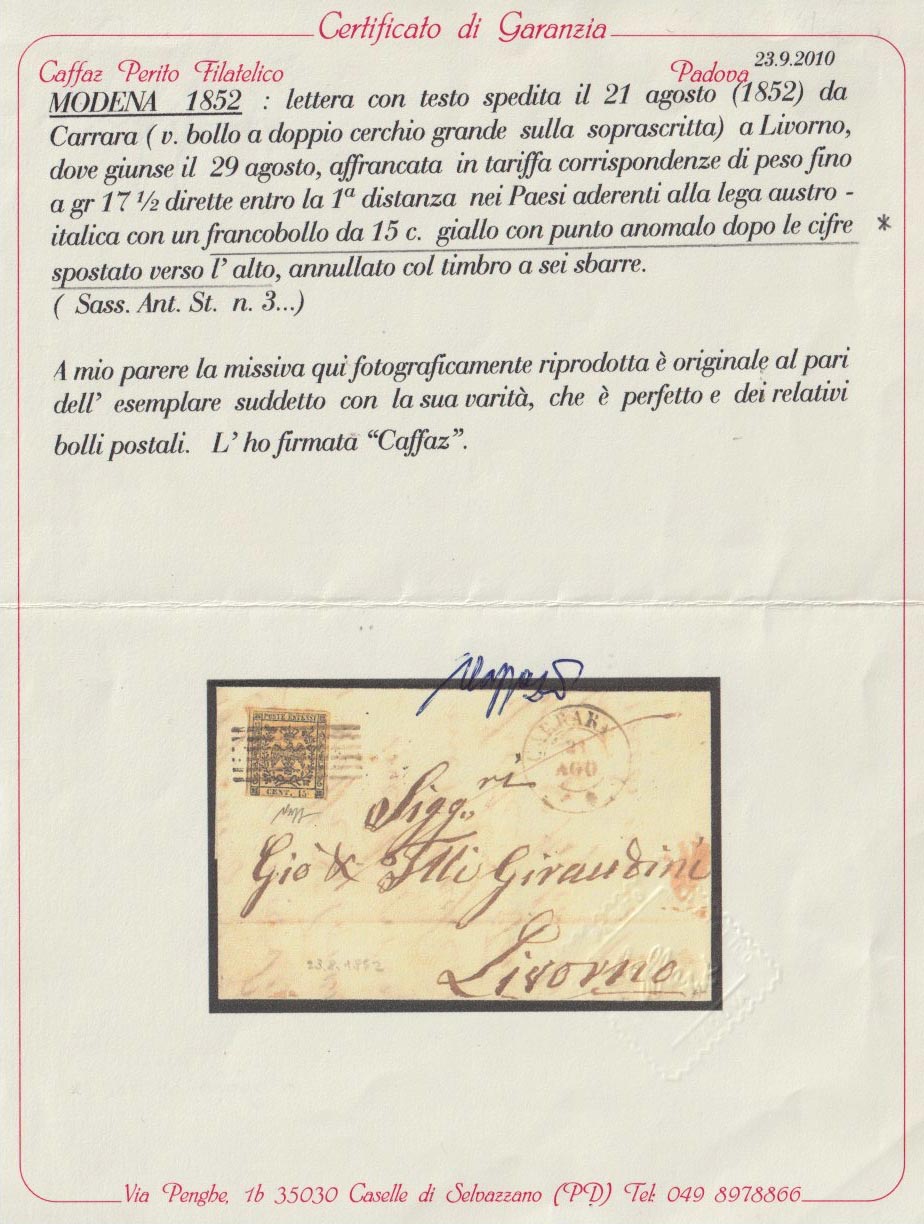 Certificato di Garanzia
Caffaz Perito Filatelico
Padova 23.9.2010
MODENA 1852 : lettera con testo spedita il 21 agosto (1852) da
Carrara ( v. bollo a doppio cerchio grande sulla soprascritta) a Livorno,
dove giunse il 29 agosto, affrancata in tariffa corrispondenze di peso fino
a gr 17 ½ dirette entro la 1ª distanza nei Paesi aderenti alla lega austro -
italica con un francobollo da 15 c. giallo con punto anomalo dopo le cifre *
spostato verso l' alto, annullato col timbro a sei sbarre.
( Sass. Ant. St. n. 3...)
A mio parere la missiva quì fotograficamente riprodotta è originale al pari
dell' esemplare suddetto con la sua varità, che è perfetto e dei relativi
bolli postali. L' ho firmata "Caffaz".
POSTE ESTENSI
CENT. 15
CARRARA
21
AGO
Sigg.ri
Giò & Flli Giraudini
Livorno
23.8.1852
Via Penghe, 1b 35030 Caselle di Selvazzano (PD) Tel: 049 8978866